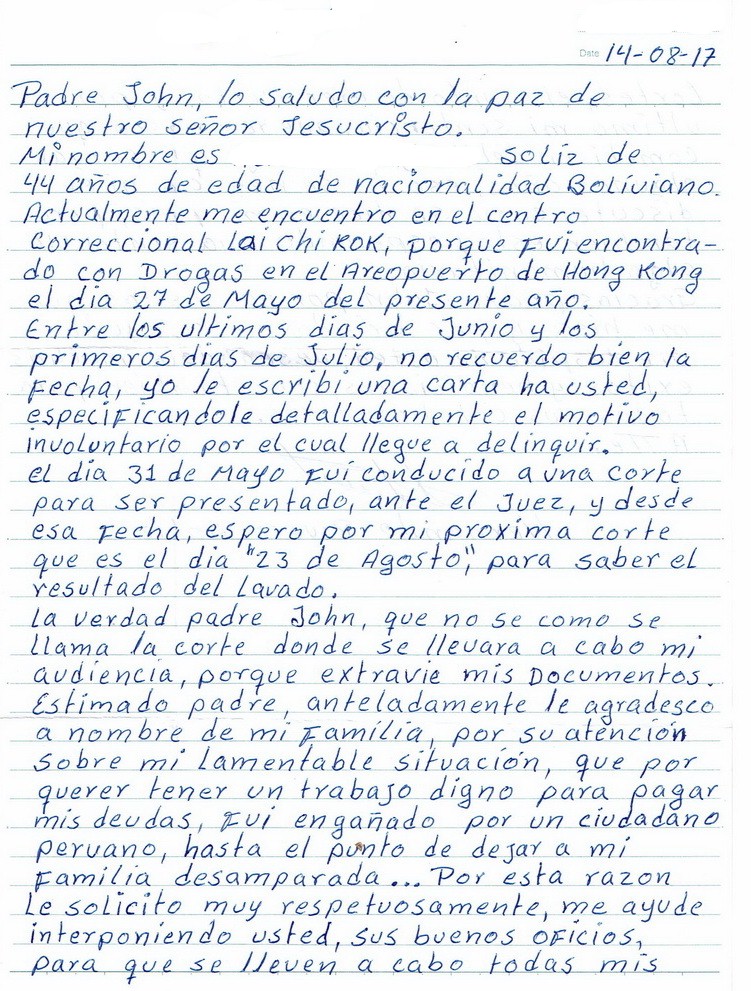 Date 14-08-17
Padre John, lo saludo con la paz de
nuestro señor Jesucristo.
Mi nombre es soliz de
44 años de edad de nacionalidad Boliviano.
Actualmente me encuentro en el centro
Correccional Lai Chi KOK, porque Fui encontra-
do con Drogas en el Areopuerto de Hong Kong
el dia 27 de Mayo del presente año.
Entre los ultimos dias de Junio y los
primeros dias de Julio, no recuerdo bien la
Fecha, yo le escribi una carta ha usted,
especificandole detalladamente el motivo
involuntario por el cual llegue a delinquir.
el dia 31 de Mayo Fui conducido a una corte
para ser presentado, ante el Juez, y desde
esa Fecha, espero por mi proxima corte
que es el dia "23 de Agosto", para saber el
resultado del Lavado.
La verdad padre John, que no se como se
llama la corte donde se llevara a cabo mi
audiencia, porque extravie mis Documentos.
Estimado padre, anteladamente le agradesco
a nombre de mi Familia, por su atención
sobre mi lamentable situación, que por
querer tener un trabajo digno para pagar
mis deudas, Fui engañado por un ciudadano
peruano, hasta el punto de dejar a mi
Familia desamparada... Por esta razon
Le solicito muy respetuosamente, me ayude
interponiendo usted, sus buenos oficios,
para que se lleven a cabo todas mis